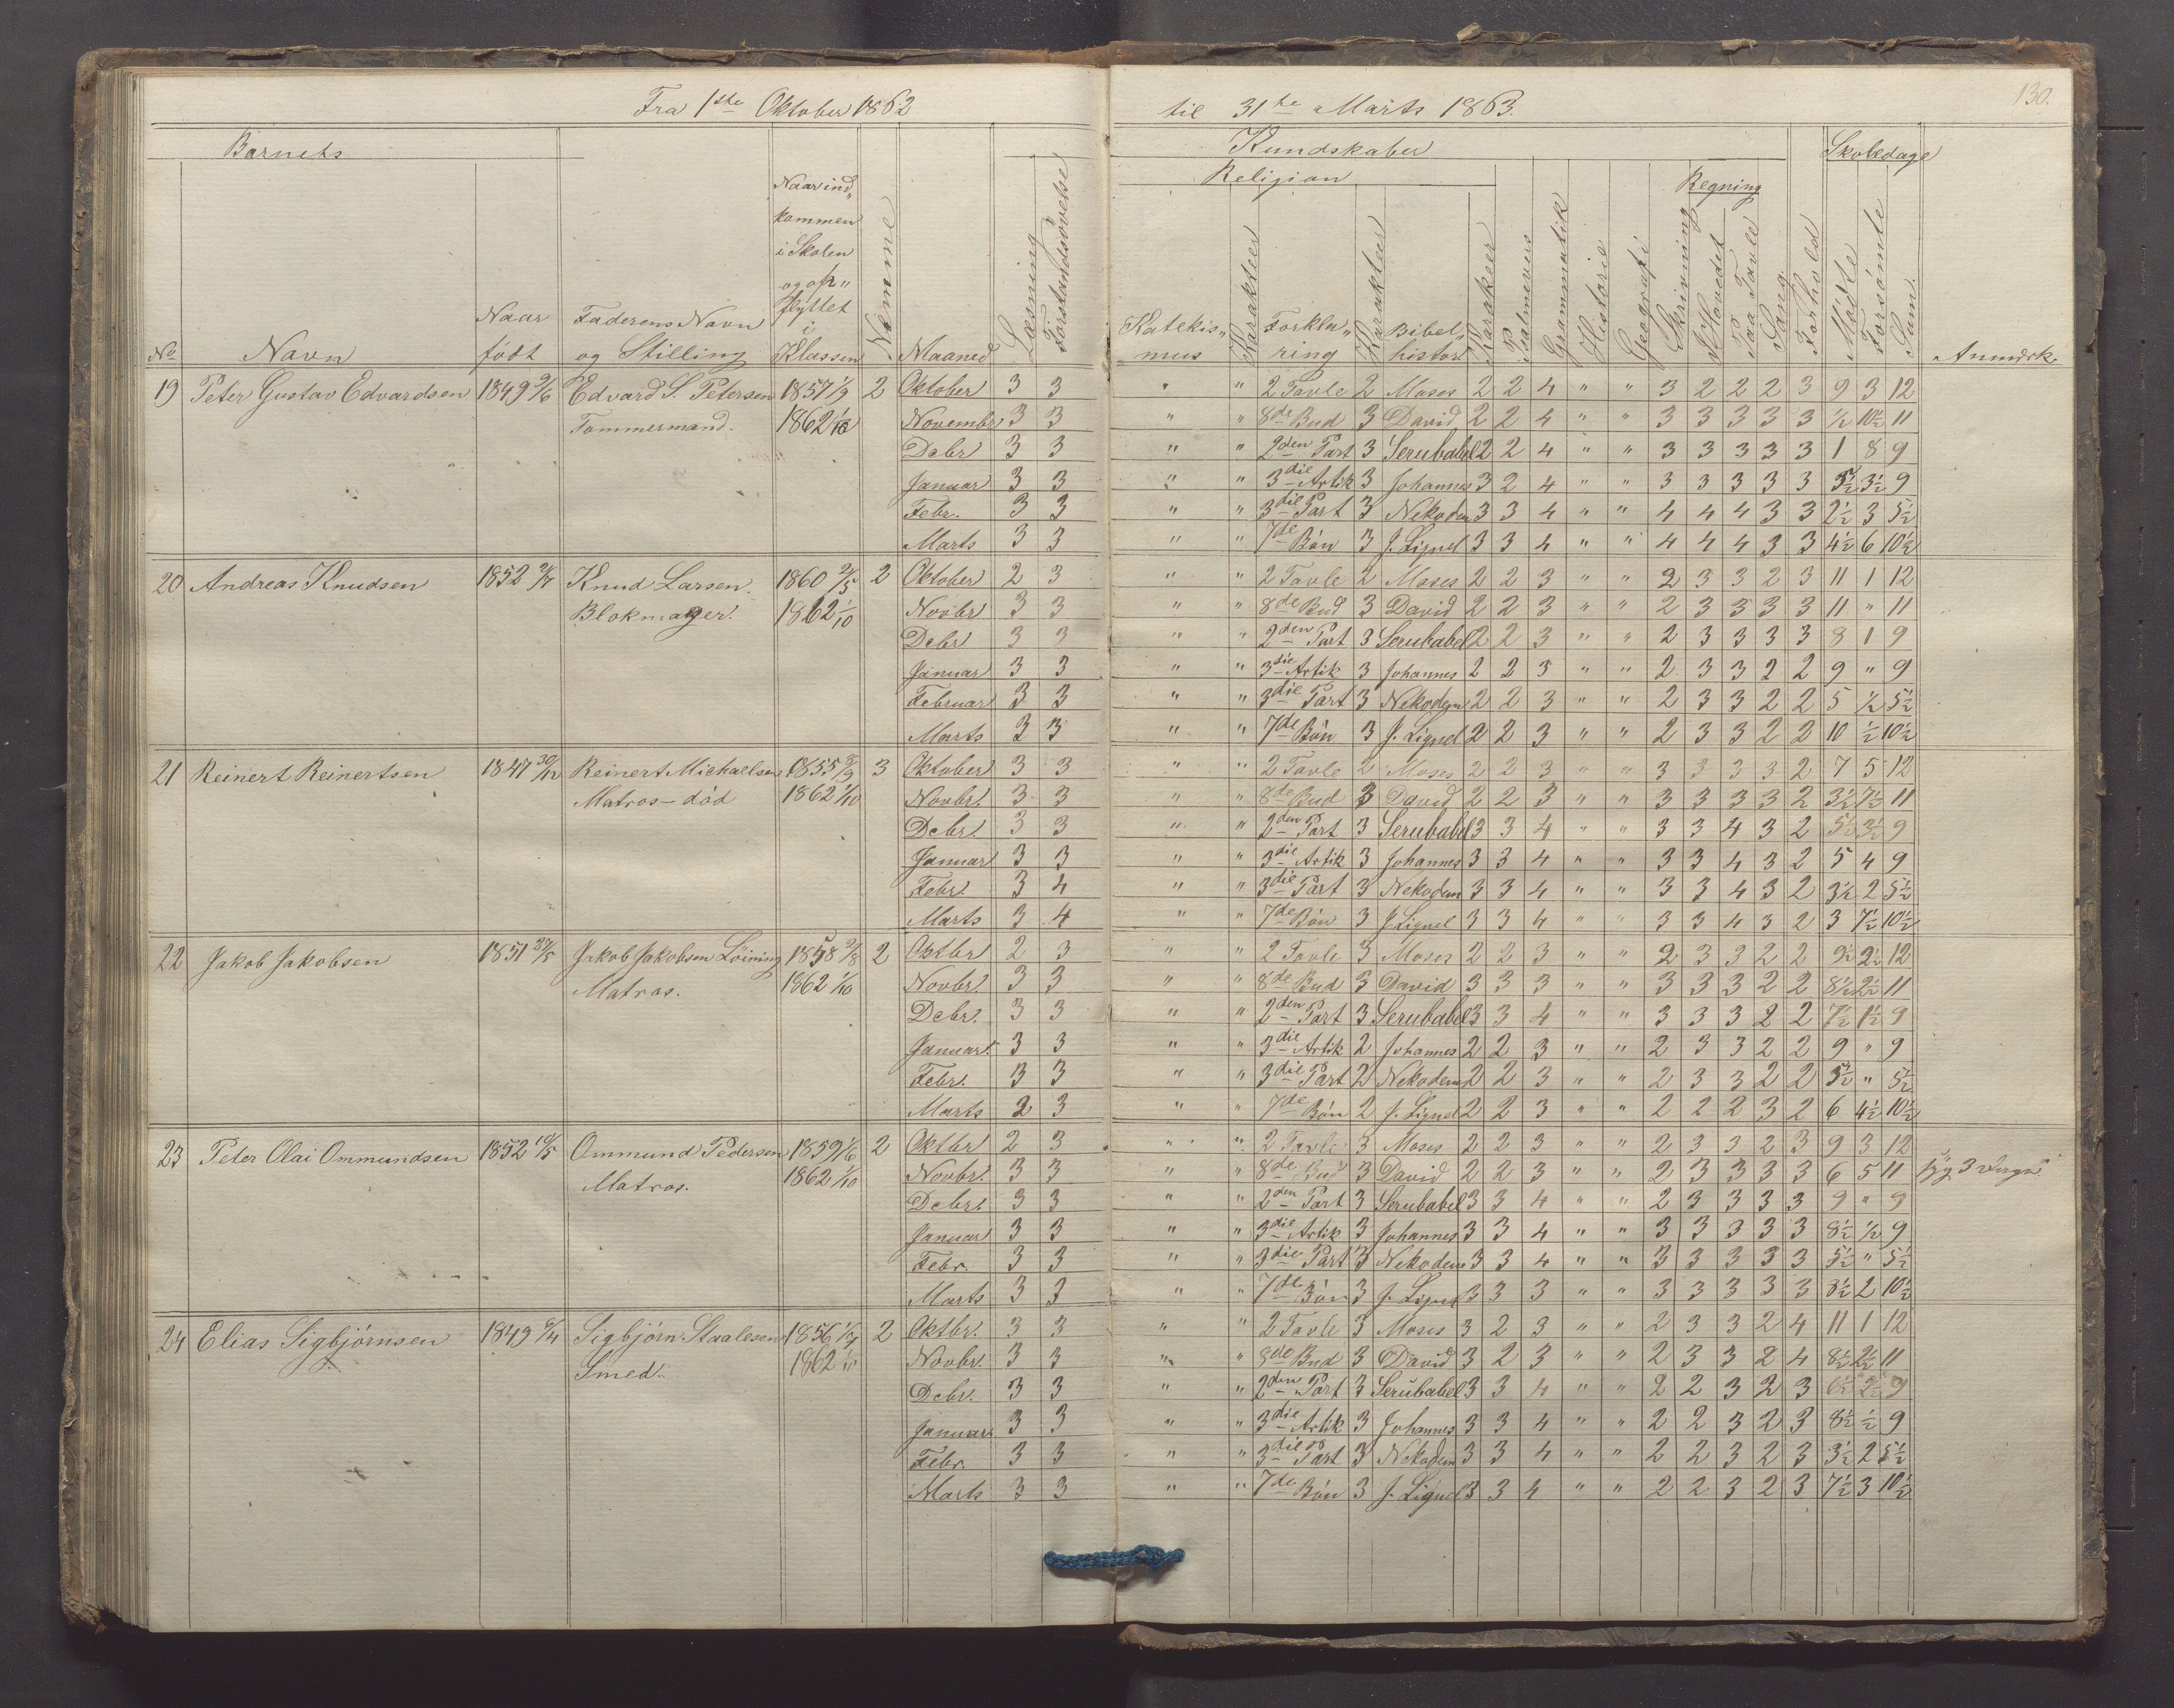 Fra 1ste Oktober 1862 til 31te Marts 1863.
130.
Barnets Kundskaber Skoledage
Religion Regning
No Navn Naar født Faderens Navn og Stilling Naar ind„kommen i Skolen og op„flyttet i Klassen Nemme Maaned Læsning Forstandsøvelse Katekis„mus Karakteer Forkla„ring Karakteer Bibel„histor. Karakteer Psalmevers Grammatik Historie Geografi Skrivning I Hovedet Paa Tavle Sang Forhold Mødte Forsømte Sum Anmærk.
19 Peter Gustav Edvardsen 1849 9/6 Edvard S. Petersen 1857 1/9 2 Oktober 3 3 " " 2 Tavle 2 Moses 2 2 4 " " 3 2 2 2 3 9 3 12
Tømmermand. 1862 1/10 Novembr 3 3 " " 8de Bud 3 David 2 2 4 " " 3 3 3 3 3 1/2 10 1/2 11
Debr 3 3 " " 2den Part 3 Serubabel 2 2 4 " " 3 3 3 3 3 1 8 9
Januar 3 3 " " 3die Artik 3 Johannes 3 2 4 " " 3 3 3 3 3 5 1/2 3 1/2 9
Febr. 3 3 " " 3die Part 3 Nekodem 3 3 4 " " 4 4 4 3 3 2 1/2 3 5 1/2
Marts 3 3 " " 7de Bøn 3 J. Lignel 3 3 4 " " 4 4 4 3 3 4 1/2 6 10 1/2
20 Andreas Knudsen 1852 Knud Larsen. 1860 2 Oktober 2 3 " " 2 Tavle 2 Moses 2 2 3 " " 2 3 3 2 3 11 1 12
Blokmager. 1862 1/10 Novbr 3 3 " " 8de Bud 3 David 2 2 3 " " 2 3 3 3 3 11 " 11
Debr 3 3 " " 2den Part 3 Serubabel 2 2 3 " " 2 3 3 3 3 8 1 9
Januar 3 3 " " 3die Artik 3 Johannes 2 2 3 " " 2 3 3 2 2 9 " 9
Februar 3 3 " " 3die Part 3 Nekodem 2 2 3 " " 2 3 3 2 2 5 1/2 5 1/2
Marts 3 3 " " 7de Bøn 3 J. Lignel 2 2 3 " " 2 3 3 2 2 10 1/2 10 1/2
21 Reinert Reinertsen 1847 30/12 Reinert Michaelsen 1855 8/9 3 Oktober 3 3 " " 2 Tavle 2 Moses 2 2 3 " " 3 3 3 3 2 7 5 12
Matros – død 1862 1/10 Novbr. 3 3 " " 8de Bud 3 David 2 2 3 " " 3 3 3 3 2 3 1/2 7 1/2 11
Debr. 3 3 " " 2den Part 3 Serubabel 3 3 4 " " 3 3 4 3 2 5 1/2 3 1/2 9
Januar 3 3 " " 3die Artik 3 Johannes 3 3 4 " " 3 3 4 3 2 5 4 9
Febr. 3 4 " " 3die Part 3 Nekodem 3 3 4 " " 3 3 4 3 2 3 1/2 2 5 1/2
Marts 3 4 " " 7de Bøn 3 J. Lignel 3 3 4 " " 3 3 4 3 2 3 7 1/2 10 1/2
22 Jakob Jakobsen 1851 27/5 Jakob Jakobsen Løining 1858 2/8 2 Oktbr 2 3 " " 2 Tavle 3 Moses 2 2 3 " " 2 3 3 2 2 9 1/2 2 1/2 12
Matros. 1862 1/10 Novbr. 3 3 " " 8de Bud 3 David 3 3 3 " " 3 3 3 2 2 8 1/2 2 1/2 11
Debr. 3 3 " " 2den Part 3 Serubabel 3 3 4 " " 3 3 3 2 2 7 1/2 1 1/2 9
Januar. 3 3 " " 3die Artik 2 Johannes 2 2 3 " " 2 3 3 2 2 9 " 9
Febr. 3 3 " " 3die Part 2 Nekodem 2 2 3 " " 2 3 3 2 2 5 1/2 " 5 1/2
Marts 2 3 " " 7de Bøn 2 J. Lignel 2 2 3 " " 2 2 2 3 2 6 4 1/2 10 1/2
23 Peter Olai Ommundsen 1852 10/5 Ommund Pedersen 1859 1/6 2 Oktbr 2 3 " " 2 Tavle 3 Moses 2 2 3 " " 2 3 3 2 3 9 3 12
Matros. 1862 1/10 Novbr. 3 3 " " 8de Bud 3 David 2 2 3 " " 2 3 3 3 3 6 5 11 syg 3 Dage
Debr. 3 3 " " 2den Part 3 Serubabel 3 3 4 " " 2 3 3 3 3 9 " 9
Januar 3 3 " " 3die Artik 3 Johannes 3 3 4 " " 3 3 3 3 3 8 1/2 1/2 9
Febr. 3 3 " " 3die Part 3 Nekodem 3 3 4 " " 3 3 3 3 3 5 1/2 " 5 1/2
Marts 3 3 " " 7de Bøn 3 J. Lignel 3 3 3 " " 3 3 3 3 3 8 1/2 2 10 1/2
24 Elias Sigbjørnsen 1849 Sigbjørn Staalesen 1856 2 Oktbr. 3 3 " " 2 Tavle 3 Moses 3 2 3 " " 2 3 3 2 4 11 1 12
Smed. 1862 1/10 Novbr. 3 3 " " 8de Bud 3 David 3 2 3 " " 2 3 3 2 4 8 1/2 2 1/2 11
Debr. 3 3 " " 2den Part 3 Serubabel 3 3 4 " " 2 2 3 2 3 6 1/2 2 1/2 9
Januar. 3 3 " " 3die Artik 3 Johannes 3 3 4 " " 2 2 3 2 3 8 1/2 1/2 9
Febr. 3 3 " " 3die Part 3 Nekodem 3 3 4 " " 2 2 3 2 3 3 1/2 2 5 1/2
Marts 3 3 " " 7de Bøn 3 J. Lignel 3 3 4 " " 2 2 3 2 3 7 1/2 3 10 1/2